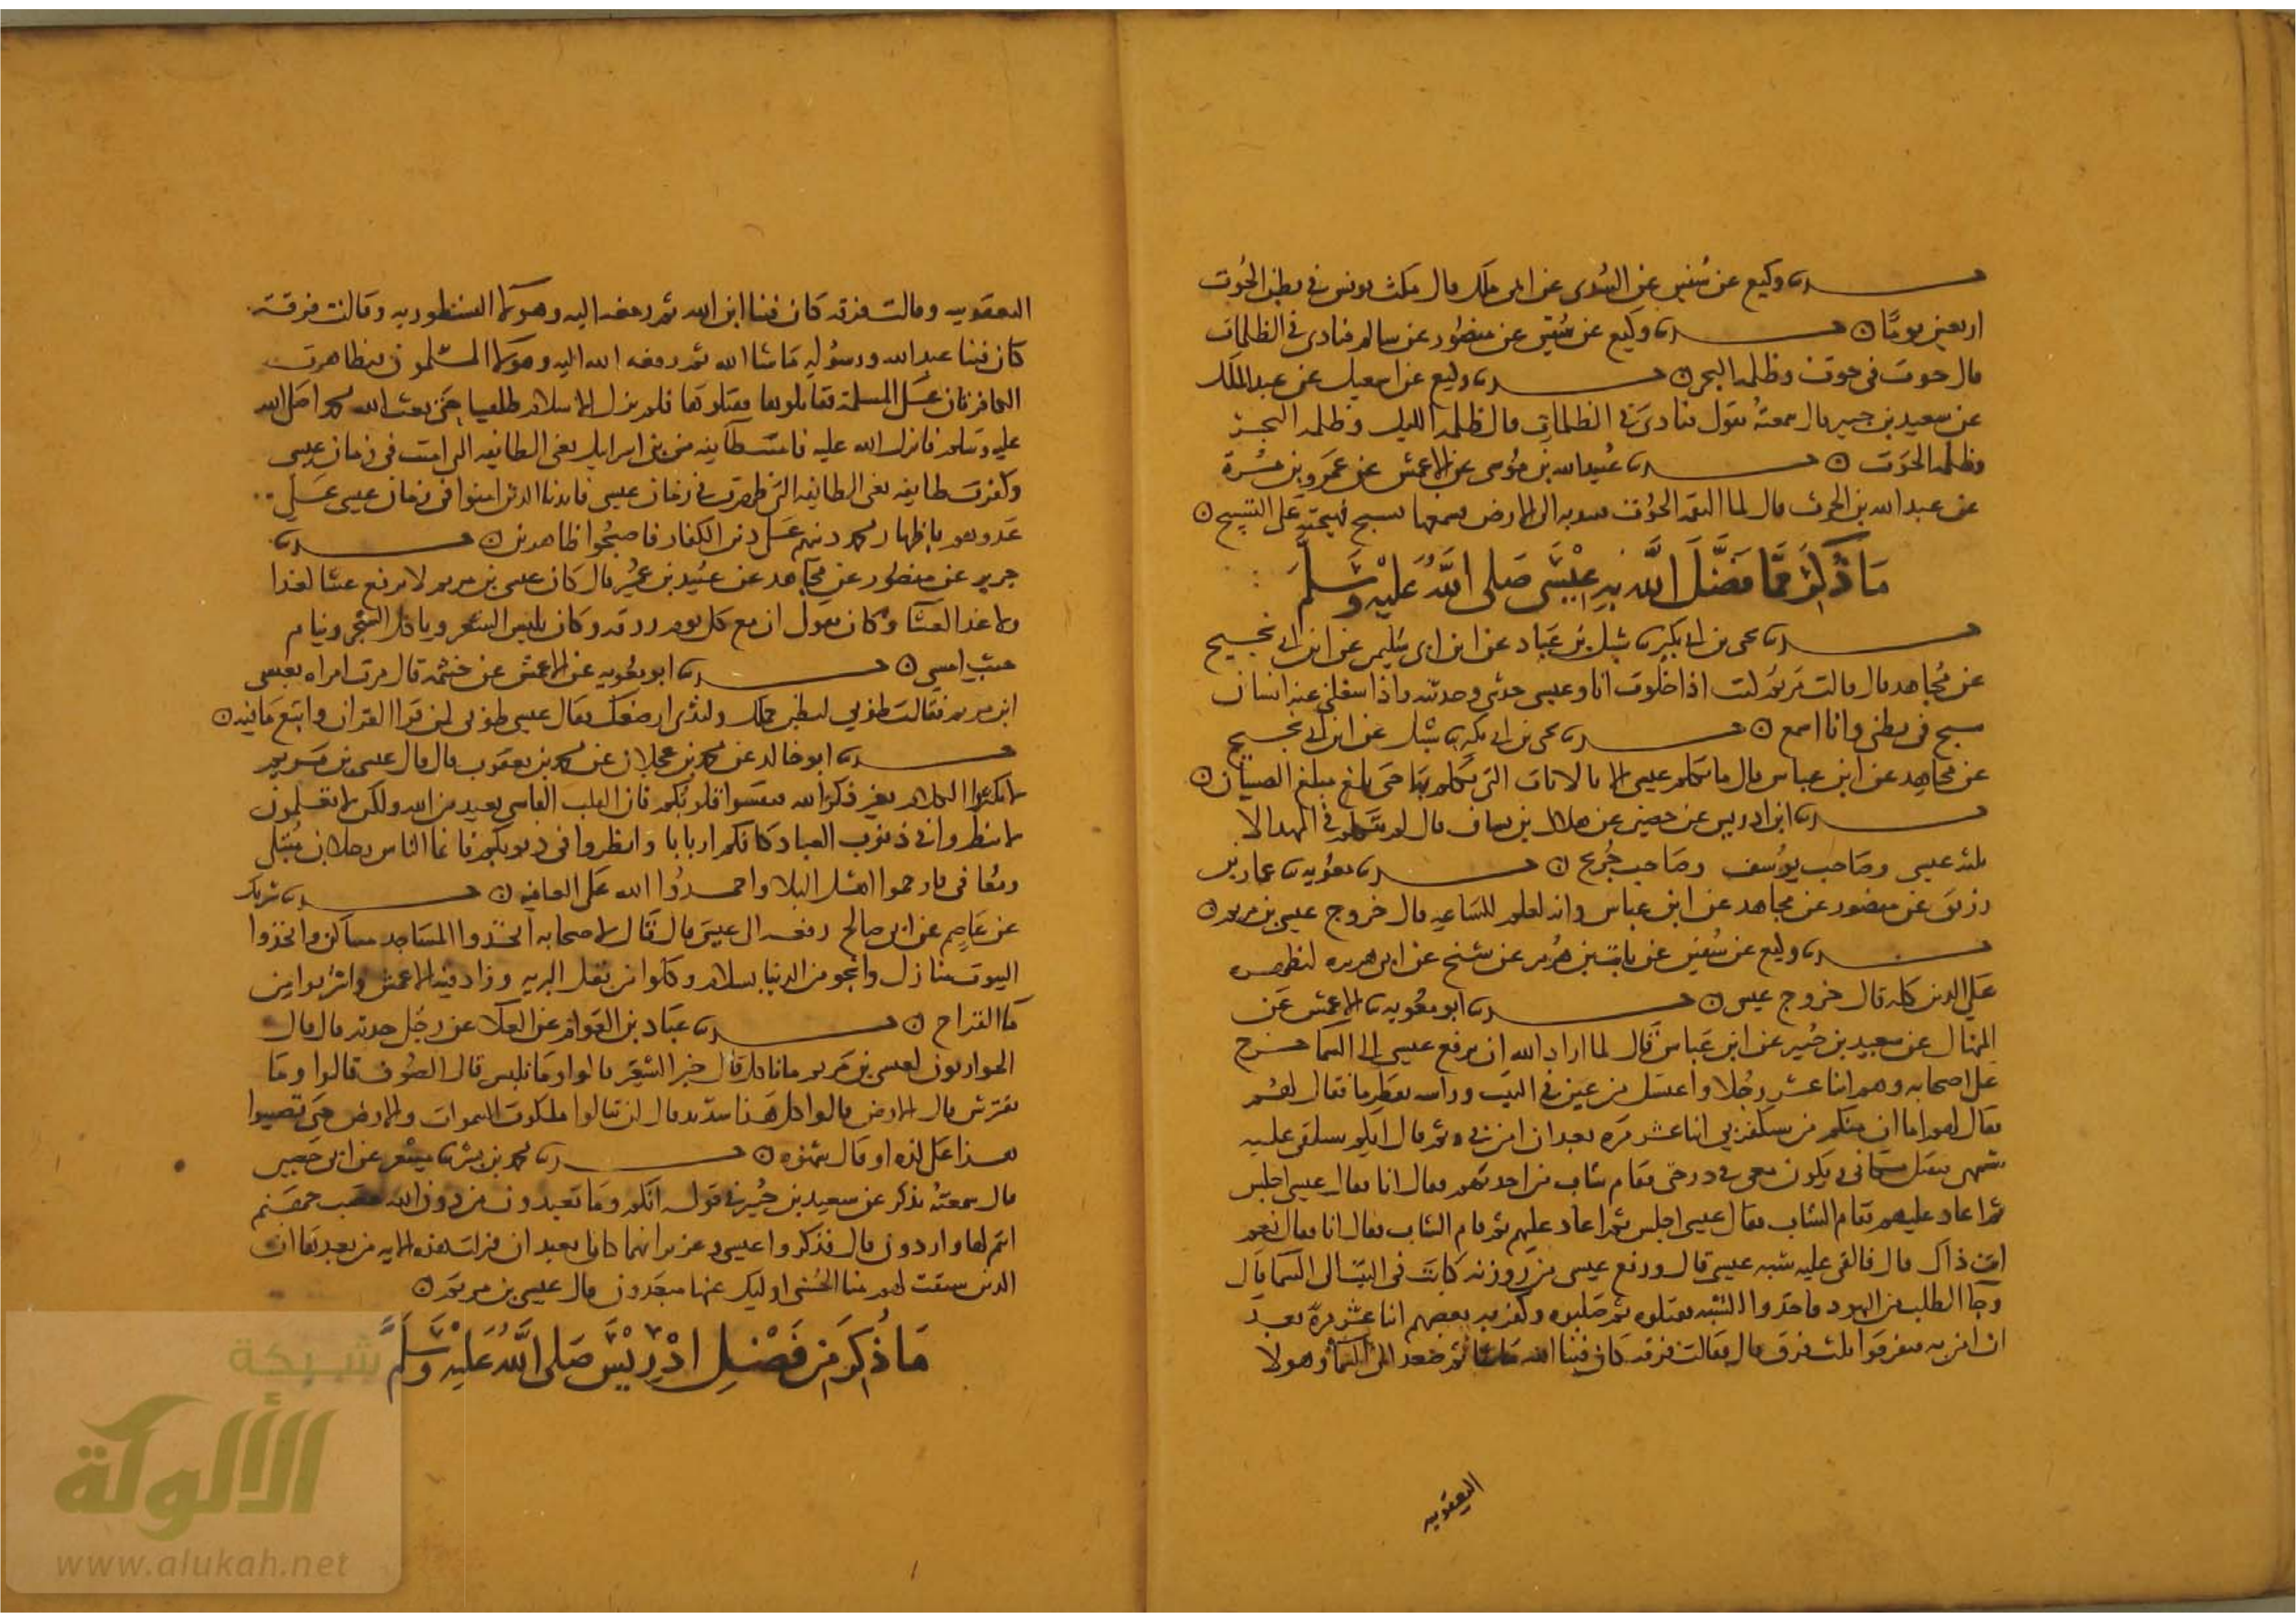 حدثنا وكيع عن سفين عن السدى عن ابى ملك قال مكث يونس فى بطن الحوت
اربعين يومًا ۝ حدثنا وكيع عن سفين عن منصور عن سالم فنادى فى الظلمات
قال حوت فى حوت وظلمه البحر ۝ حدثنا وكيع عن اسمعيل عن عبد الملك
عن سعيد بن جبير قال سمعته يقول فنادى فى الظلمات قال ظلمه الليل وظلمه البحر
وظلمه الحوت ۝ حدثنا عبيد الله بن موسى عن الاعمش عن عمرو بن مرة
عن عبد الله بن الحرث قال لما التقم الحوت نبذ به الى الارض فسمعها تسبح فهيجته على التسبيح ۝
مَا ذُكِرَ مِمَّا فَضَّلَ اللَّه بِهِ عِيْسَى صَلى اللَّهُ عَلَيْهِ وَسَلَّمَ
حدثنا يحيى بن ابى بكير نا شبل بن عباد عن ابن ابى سليم عن ابن ابى نجيح
عن مجاهد قال قالت مريم كنت اذا خلوت انا وعيسى حدثنى وحدثته واذا شغلنى عنه انسان
سبح فى بطنى وانا اسمع ۝ حدثنا يحيى بن ابى بكير نا شبل عن ابن ابى نجيح
عن مجاهد عن ابن عباس قال ما تكلم عيسى الا بالايات التى تكلم بها حتى بلغ مبلغ الصبيان ۝
حدثنا ابن ادريس عن حصين عن هلال بن يساف قال لم يتكلم فى المهد الا
ثلثه عيسى وصاحب يوسف وصاحب جريج ۝ حدثنا معويه نا عمار بن
رزيق عن منصور عن مجاهد عن ابن عباس وانه لعلم للساعه قال خروج عيسى بن مريم ۝
حدثنا وكيع عن سفين عن ثابت بن هرمز عن شيخ عن ابى هريره ليظهره
على الدين كله قال خروج عيسى ۝ حدثنا ابو معويه نا الاعمش عن
المنهال عن سعيد بن جبير عن ابن عباس قال لما اراد الله ان يرفع عيسى الى السما خرج
على اصحابه وهم اثنا عشر رجلا واغتسل من عين فى البيت وراسه يقطر ما فقال لهم
فقال لهم اما ان منكم من سيكفر بى اثنا عشر مره بعد ان امن بى ثم قال ايكم سيلقى عليه
شبهى فيقتل مكانى ويكون معى فى درجتى فقام شاب من احدثهم فقال انا فقال عيسى اجلس
ثم اعاد عليهم فقام الشاب فقال عيسى اجلس ثم اعاد عليهم ثم قام الشاب فقال انا فقال نعم
انت ذاك قال فالقى عليه شبه عيسى قال ورفع عيسى من روزنه كانت فى البيت الى السما قال
وجا الطلب من اليهود فاخذوا الشبه فقتلوه ثم صلبوه وكفر به بعضهم اثنا عشر مرة بعد
ان امن به فتفرقوا ثلث فرق قال فقالت فرقه كان فينا الله ما شا ثم صعد الى السما وهولا
اليعقوبيه
اليعقوبيه وقالت فرقه كان فينا ابن الله ثم رفعه اليه وهولا النسطوريه وقالت فرقة
كان فينا عبد الله ورسوله ما شا الله ثم رفعه الله اليه وهولا المسلمون فتظاهرت
الكافرتان على المسلمة فقاتلوها فقتلوها فلم يزل الاسلام طامسا حتى بعث الله محمدا صلى الله
عليه وسلم فانزل الله عليه فامنت طايفه من بنى اسرايل يعنى الطايفه التى امنت فى زمان عيسى
وكفرت طايفه يعنى الطايفه التى كفرت فى زمان عيسى فايدنا الذين امنوا فى زمان عيسى على
عدوهم باظهار محمد دينهم على دين الكفار فاصبحوا ظاهرين ۝ حدثنا
جرير عن منصور عن مجاهد عن عبيد بن عمير قال كان عيسى بن مريم لا يرفع عشا لغدا
ولا غدا لعشا وكان يقول ان مع كل يوم رزقه وكان يلبس الشعر وياكل الشجر وينام
حيث امسى ۝ حدثنا ابو معويه عن الاعمش عن خيثمه قال مرت امراه بعيسى
ابن مريم فقالت طوبى لبطن حملك ولثدى ارضعك فقال عيسى طوبى لمن قرا القران واتبع ما فيه ۝
حدثنا ابو خالد عن محمد بن عجلان عن محمد بن يعقوب قال قال عيسى بن مريم
لا تكثروا الكلام بغير ذكر الله فتقسوا قلوبكم فان القلب القاسى بعيد من الله ولكن لا تعلمون
لا تنظروا فى ذنوب العباد كانكم اربابا وانظروا فى ذنوبكم فانما الناس رجلان مبتلى
ومعافى فارحموا اهل البلا واحمدوا الله على العافيه ۝ حدثنا شريك
عن عاصم عن ابى صالح رفعه الى عيسى قال قال لاصحابه اتخذوا المساجد مساكن واتخذوا
البيوت منازل وانجو من الدنيا بسلام وكلوا من بقل البريه وزاد فيه الاعمش واشربوا من
ما القراح ۝ حدثنا عباد بن العوام عن العلا عن رجل حدثه قال قال
الحواريون لعيسى بن مريم ما ناكل قال خبز الشعير قالوا وما نلبس قال الصوف قالوا وما
نفترش قال الارض قالوا كل هذا شديد قال لن تنالوا ملكوت السموات والارض حتى تصيبوا
هذا على لذه او قال شهوه ۝ حدثنا محمد بن بشر نا مسعر عن ابى حصين
قال سمعته يذكر عن سعيد بن جبير فى قوله انكم وما تعبدون من دون الله حصب جهنم
انتم لها واردون قال فذكروا عيسى وعزيرا انهما كانا يعبدان فنزلت هذه الايه من بعدها ان
الذين سبقت لهم منا الحسنى اوليك عنها مبعدون قال عيسى بن مريم ۝
مَا ذُكِرَ مِنْ فَضْلِ اِدْرِيْسَ صَلى اللَّهُ عَلَيْهِ وَسَلَّمَ
شبكة
الألوكة
www.alukah.net